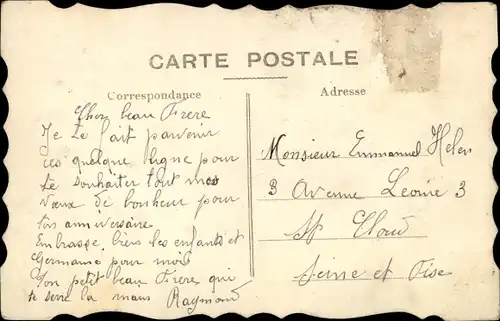 CARTE POSTALE
Correspondance
Cher beau Frere
Je te fait parvenir
ces quelque ligne pour
te souhaiter tout mes
vœux de bonheur pour
ton anniversaire.
Embrasse biens les enfants et
Germaine pour mois
Ton petit beau Frere qui
te serre la main Raymond
Adresse
Monsieur Emmanuel Helen
3 Avenue Leonie 3
St Cloud
Seine et Oise